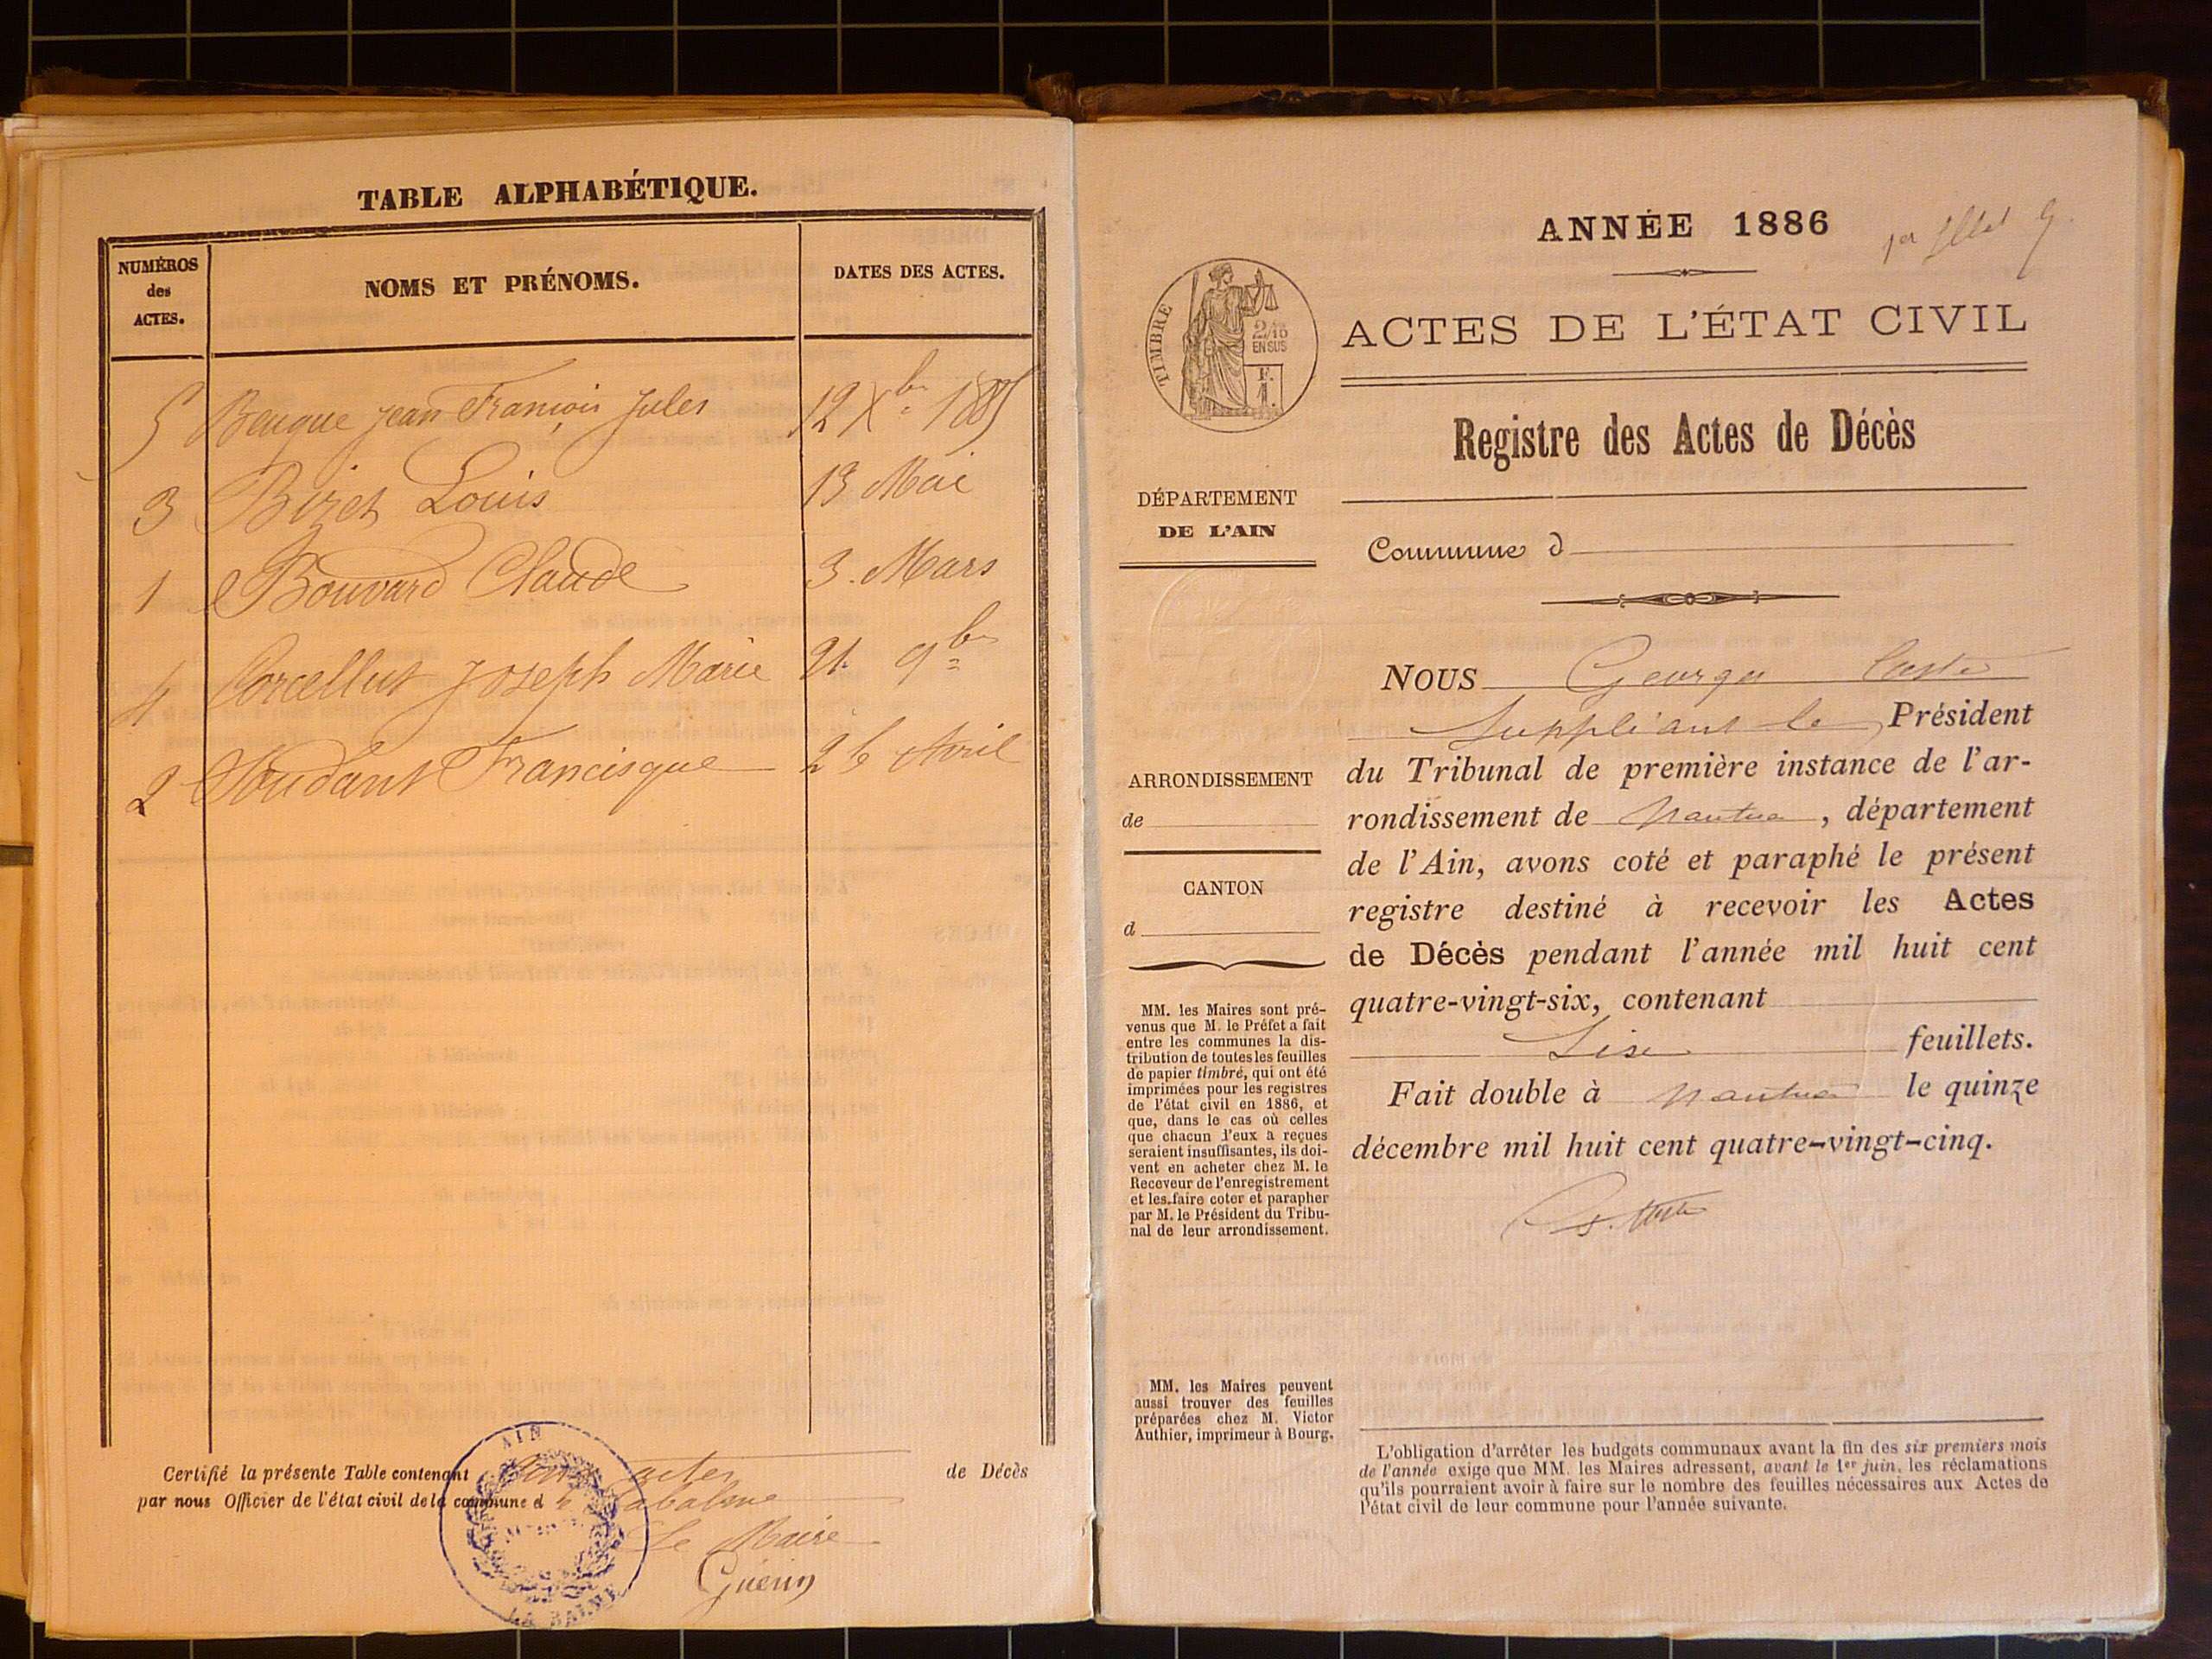 TABLE ALPHABÉTIQUE.
NUMÉROS
des
ACTES.
NOMS ET PRÉNOMS.
DATES DES ACTES.
5 Beuque jean François Jules 12 Xbre 1885
3 Bizet Louis 13 Mai
1 Bouvard Claude 3. Mars
4 Corcellut Joseph Marie 21. 9bre
2 Francisque 26 Avril
Certifié la présente Table contenant actes de Décès
par nous Officier de l'état civil de la commune d Labalme
Le Maire
Guérin
AIN
LA BALME
ANNÉE 1886
1er f
TIMBRE
2/10
EN SUS
F.
1.
ACTES DE L'ÉTAT CIVIL
Registre des Actes de Décès
DÉPARTEMENT
DE L'AIN
Commune d
ARRONDISSEMENT
de
CANTON
d
MM. les Maires sont pré-
venus que M. le Préfet a fait
entre les communes la dis-
tribution de toutes les feuilles
de papier timbré, qui ont été
imprimées pour les registres
de l'état civil en 1886, et
que, dans le cas où celles
que chacun d'eux a reçues
seraient insuffisantes, ils doi-
vent en acheter chez M. le
Receveur de l'enregistrement
et les faire coter et parapher
par M. le Président du Tribu-
nal de leur arrondissement.
MM. les Maires peuvent
aussi trouver des feuilles
préparées chez M. Victor
Authier, imprimeur à Bourg.
NOUS Georges
Suppléant le Président
du Tribunal de première instance de l'ar-
rondissement de Nantua, département
de l'Ain, avons coté et paraphé le présent
registre destiné à recevoir les Actes
de Décès pendant l'année mil huit cent
quatre-vingt-six, contenant
Six feuillets.
Fait double à Nantua le quinze
décembre mil huit cent quatre-vingt-cinq.
L'obligation d'arrêter les budgets communaux avant la fin des six premiers mois
de l'année exige que MM. les Maires adressent, avant le 1er juin, les réclamations
qu'ils pourraient avoir à faire sur le nombre des feuilles nécessaires aux Actes de
l'état civil de leur commune pour l'année suivante.